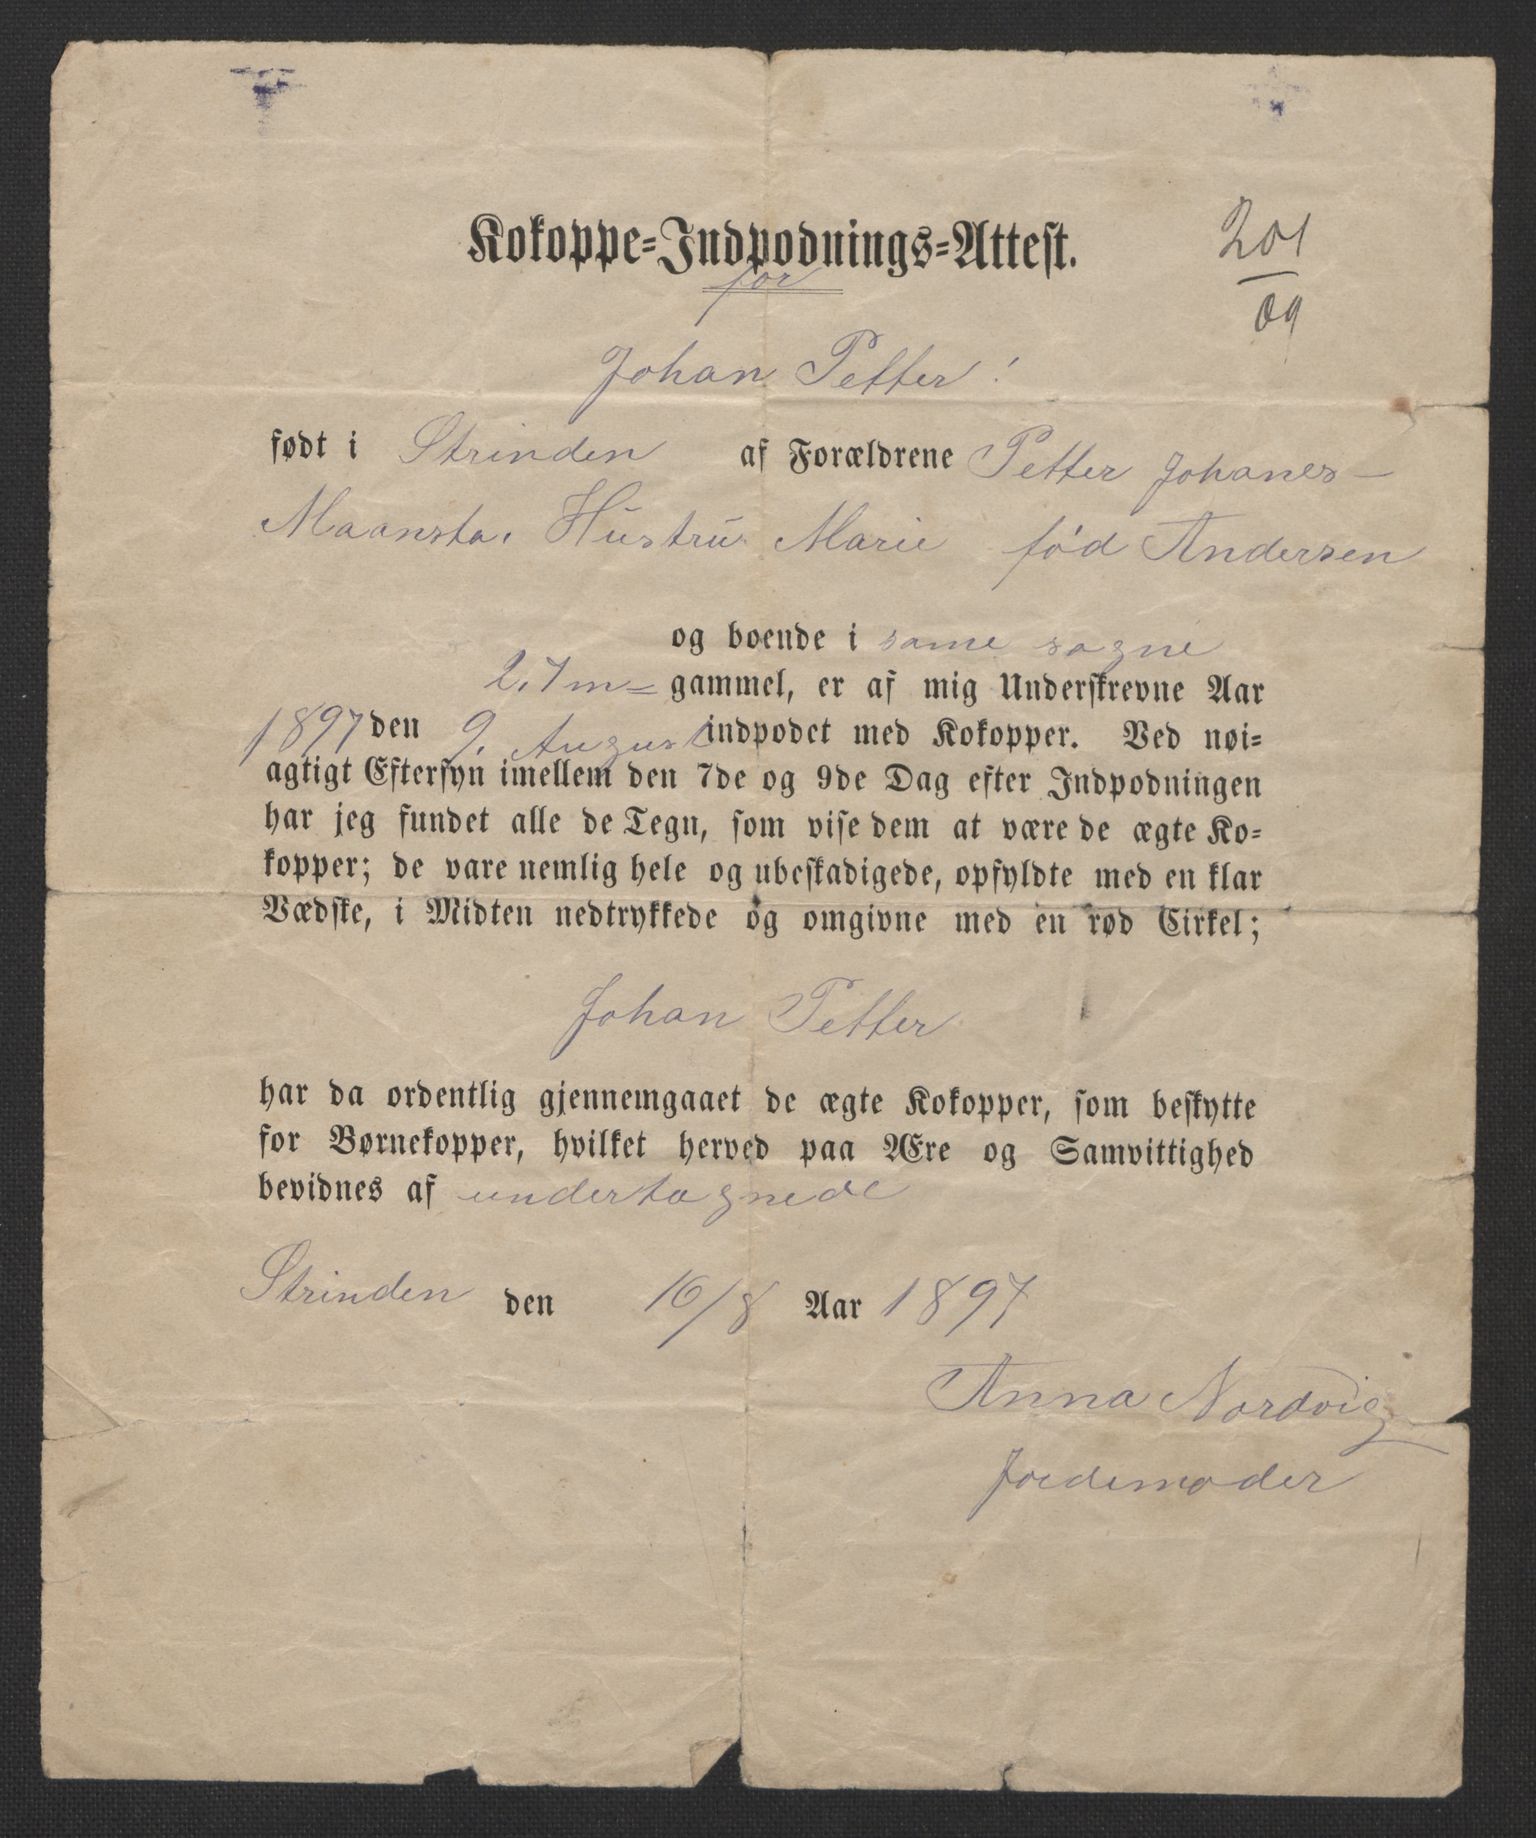 Kokoppe-Indpodnings-Attest.
201
09
for
Johan Petter!
født i Strinden af Forældrene Petter Johanes-
Maansta. Hustru Marie fød Andersen
og boende i same sogne
2.7m= gammel, er af mig Underskrevne Aar
1897 den 9. August indpodet med Kokopper. Ved nøi-
agtigt Eftersyn imellem den 7de og 9de Dag efter Indpodningen
har jeg fundet alle de Tegn, som vise dem at være de ægte Ko-
kopper; de vare nemlig hele og ubeskadigede, opfyldte med en klar
Vædske, i Midten nedtrykkede og omgivne med en rød Cirkel;
Johan Petter
har da ordentlig gjennemgaaet de ægte Kokopper, som beskytte
for Børnekopper, hvilket herved paa Ære og Samvittighed
bevidnes af undertagnede
Strinden den 16/8 Aar 1897
Anna Nordvig
Jordemoder